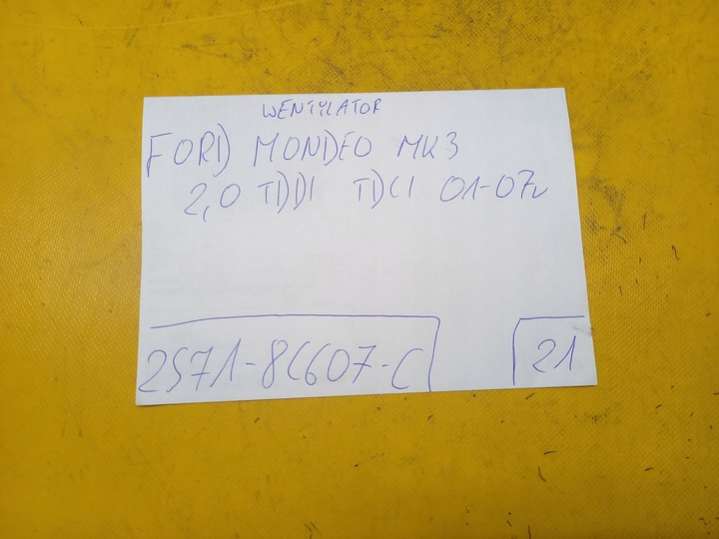 WENTYLATOR
FORD MONDEO MK3
2,0 TDDI TDCI 01-07r
2S71-8C607-C
21